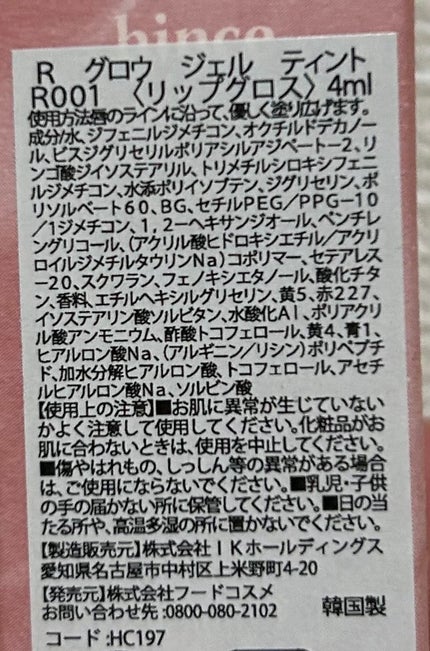 hince
R グロウ ジェル ティント
R001 〈リップグロス〉4ml
使用方法唇のラインに沿って、優しく塗り広げます。
成分/水、ジフェニルジメチコン、オクチルドデカノー
ル、ビスジグリセリルポリアシルアジペート-2、リ
ンゴ酸ジイソステアリル、トリメチルシロキシフェニ
ルジメチコン、水添ポリイソブテン、ジグリセリン、ポ
リソルベート60、BG、セチルPEG/PPG-10
/1ジメチコン、1,2-ヘキサンジオール、ペンチレ
ングリコール、(アクリル酸ヒドロキシエチル/アクリ
ロイルジメチルタウリンNa)コポリマー、セテアレス
-20、スクワラン、フェノキシエタノール、酸化チタ
ン、香料、エチルヘキシルグリセリン、黄5、赤227、
イソステアリン酸ソルビタン、水酸化Al、ポリアクリ
ル酸アンモニウム、酢酸トコフェロール、黄4、青1、
ヒアルロン酸Na、(アルギニン/リシン)ポリペプチ
ド、加水分解ヒアルロン酸、トコフェロール、アセチ
ルヒアルロン酸Na、ソルビン酸
【使用上の注意】■お肌に異常が生じていない
かよく注意して使用してください。化粧品がお
肌に合わないときは、使用を中止してください。
■傷やはれもの、しっしん等の異常がある場合
は、ご使用にならないでください。■乳児・子供
の手の届かない所に保管してください。■日の当
たる所や、高温多湿の所に置かないでください。
【製造販売元】株式会社IKホールディングス
愛知県名古屋市中村区上米野町4-20
【発売元】株式会社フードコスメ
お問い合わせ先:0800-080-2102 韓国製
コード:HC197